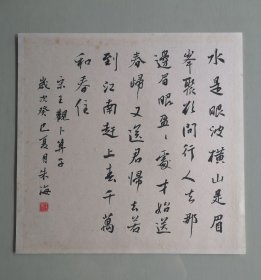 水是眼波橫山是眉
峯聚欲問行人去那
邊眉眼盈〻處才始送
春歸又送君歸去若
到江南趕上春千萬
和春住
宋王觀卜算子
歲次癸巳夏月朱海